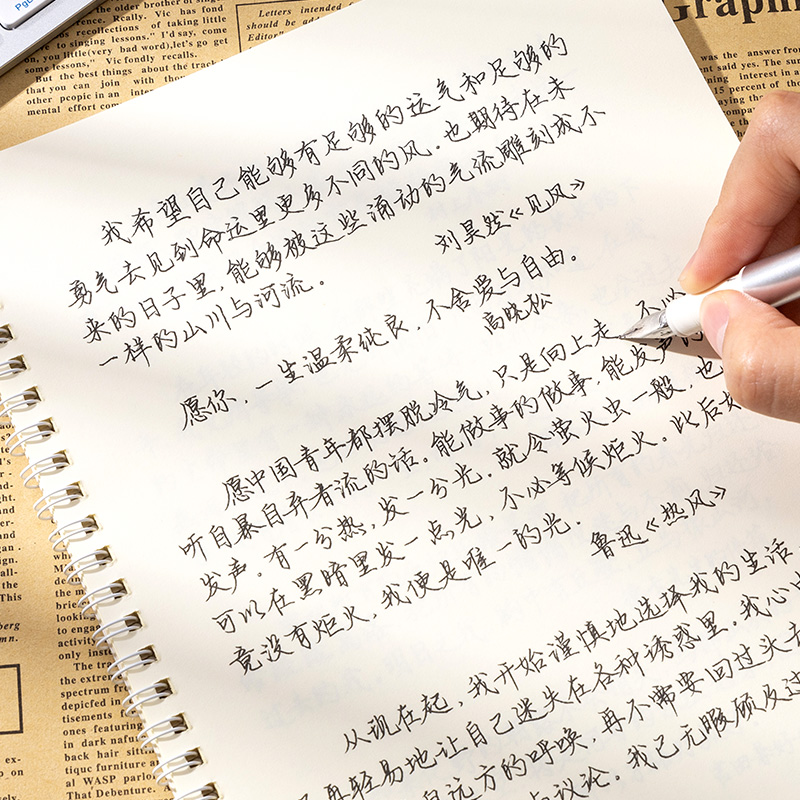 PgU
the older brother of
Really. Vic has fond
recollections of taking little
"I'd say, come
to singing lessons."
on, you little(very bad word),let's go get
some lessons," Vic fondly recalls.
But the best things about the track
that you can join with
other peopic in an
mental effort
Letters intended
should be add
Editor"
Graph
was the answer from
said yes. The
interest in a
15 percent of
我希望自己能够有足够的运气和足够的
勇气去见到命运里更多不同的风。也期待在未
来的日子里,能够被这些涌动的气流雕刻成不
一样的山川与河流。
刘昊然《见风》
愿你,一生温柔纯良,不舍爱与自由。
高晓松
愿中国青年都摆脱冷气,只是向上走,不必
听自暴自弃者流的话。能做事的做事,能发声的
发声。有一分热,发一分光。就令萤火虫一般,也
可以在黑暗里发一点光,不必等候炬火。此后如
竟没有炬火,我便是唯一的光。
鲁迅《热风》
从现在起,我开始谨慎地选择我的生活
再轻易地让自己迷失在各种诱惑里。我心中
自远方的呼唤,再不需要回过头去
与议论。我已无暇顾及过
looking
to engag
activity
only inste
The tra
the extrem
spectrum fr
depicfed in
tisements f
ones featuring
in dark natu
back hair sitt
tiquc furniture a
al WASP parlo
That Debenture.